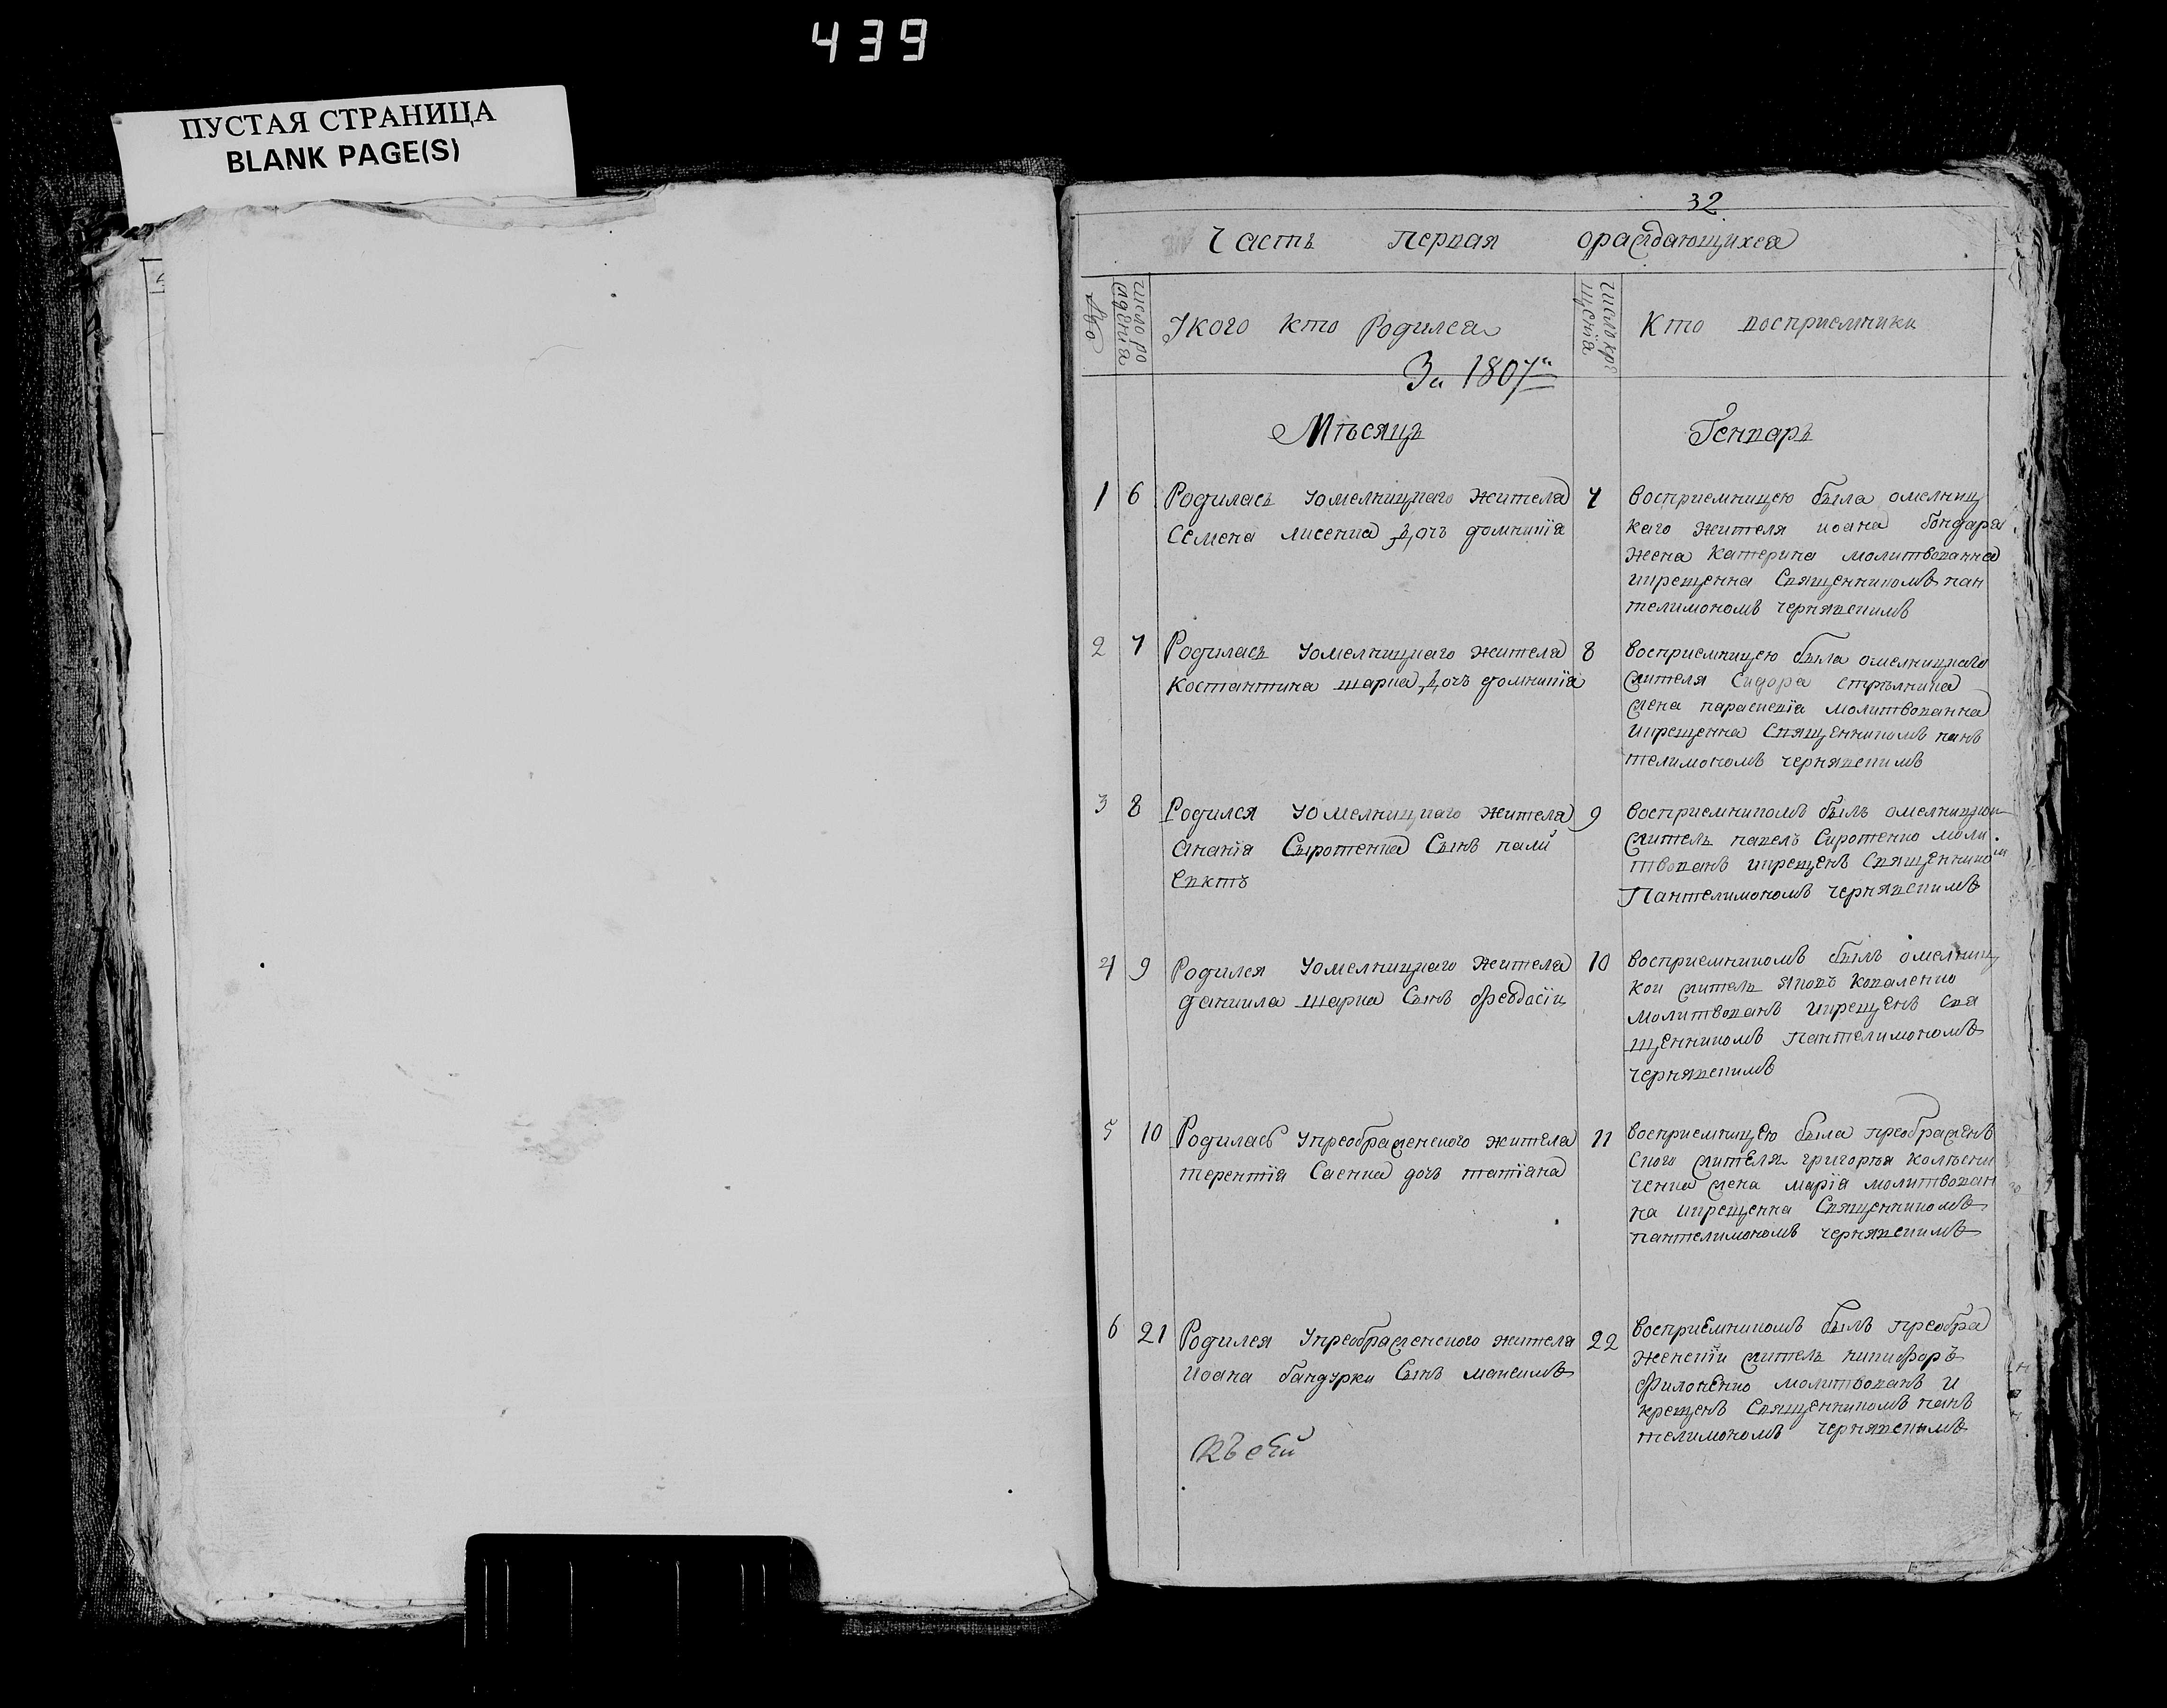 439
ПУСТАЯ СТРАНИЦА
BLANK PAGE(S)
32
Часть первая ораждающихся
число ро
ждения
Укого кто Родился
число кре
щенїя
Кто восприемники
За 1807й
Мѣсяцъ Генваръ
1 6 Родиласъ уомелницкаго жителя 7
Семена лисенка дочъ домникїя
восприемницею была омелниц
каго жителя иоана бондаря
жена катерина молитвованна
икрещенна Священникомъ пан
телимономъ чернявскимъ
2 7 Родиласъ уомелницкаго жителя 8
костантина шарка дочъ домникїя
восприемницею была омелницкаго
жителя Сидора стрѣлника
жена параскевїя молитвованна
икрещенна Священникомъ панъ
телимономъ чернявскимъ
3 8 Родился уомелницкаго жителя 9
Ананїя Сыротенка Сынъ пали
евктъ
восприемникомъ былъ омелницкои
житель павелъ Сиротенко моли
твованъ икрещенъ Священником
Пантелимономъ чернявскимъ
4 9 Родился уомелницкаго жителя 10
даниила шарка Сынъ феодосїи
восприемникомъ былъ омелниц
кои житель яковъ коваленко
молитвованъ икрещенъ Свя
щенникомъ Пантелимономъ
чернявскимъ
5 10 Родиласъ упреображенского жителя 11
терентїя Саенка дочъ татїана
восприемницею была преображенъ
ского жителя григорья колѣсни
ченка жена марїя молитвован
на икрещенна Священникомъ
пантелимономъ чернявскимъ
6 21 Родился упреображенского жителя 22
иоана бандурки Сынъ максимъ
восприемникомъ былъ преобра
женскїи житель никифоръ
филоненко молитвованъ и
крещенъ Священникомъ панъ
телимономъ чернявскимъ